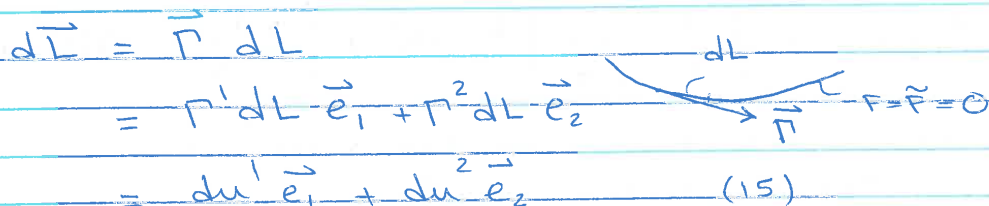 dL⃗ = Γ⃗ dL
dL
= Γ¹dL e⃗₁ + Γ²dL e⃗₂
Γ⃗
F=F̃=0
= du¹ e⃗₁ + du² e⃗₂ (15)